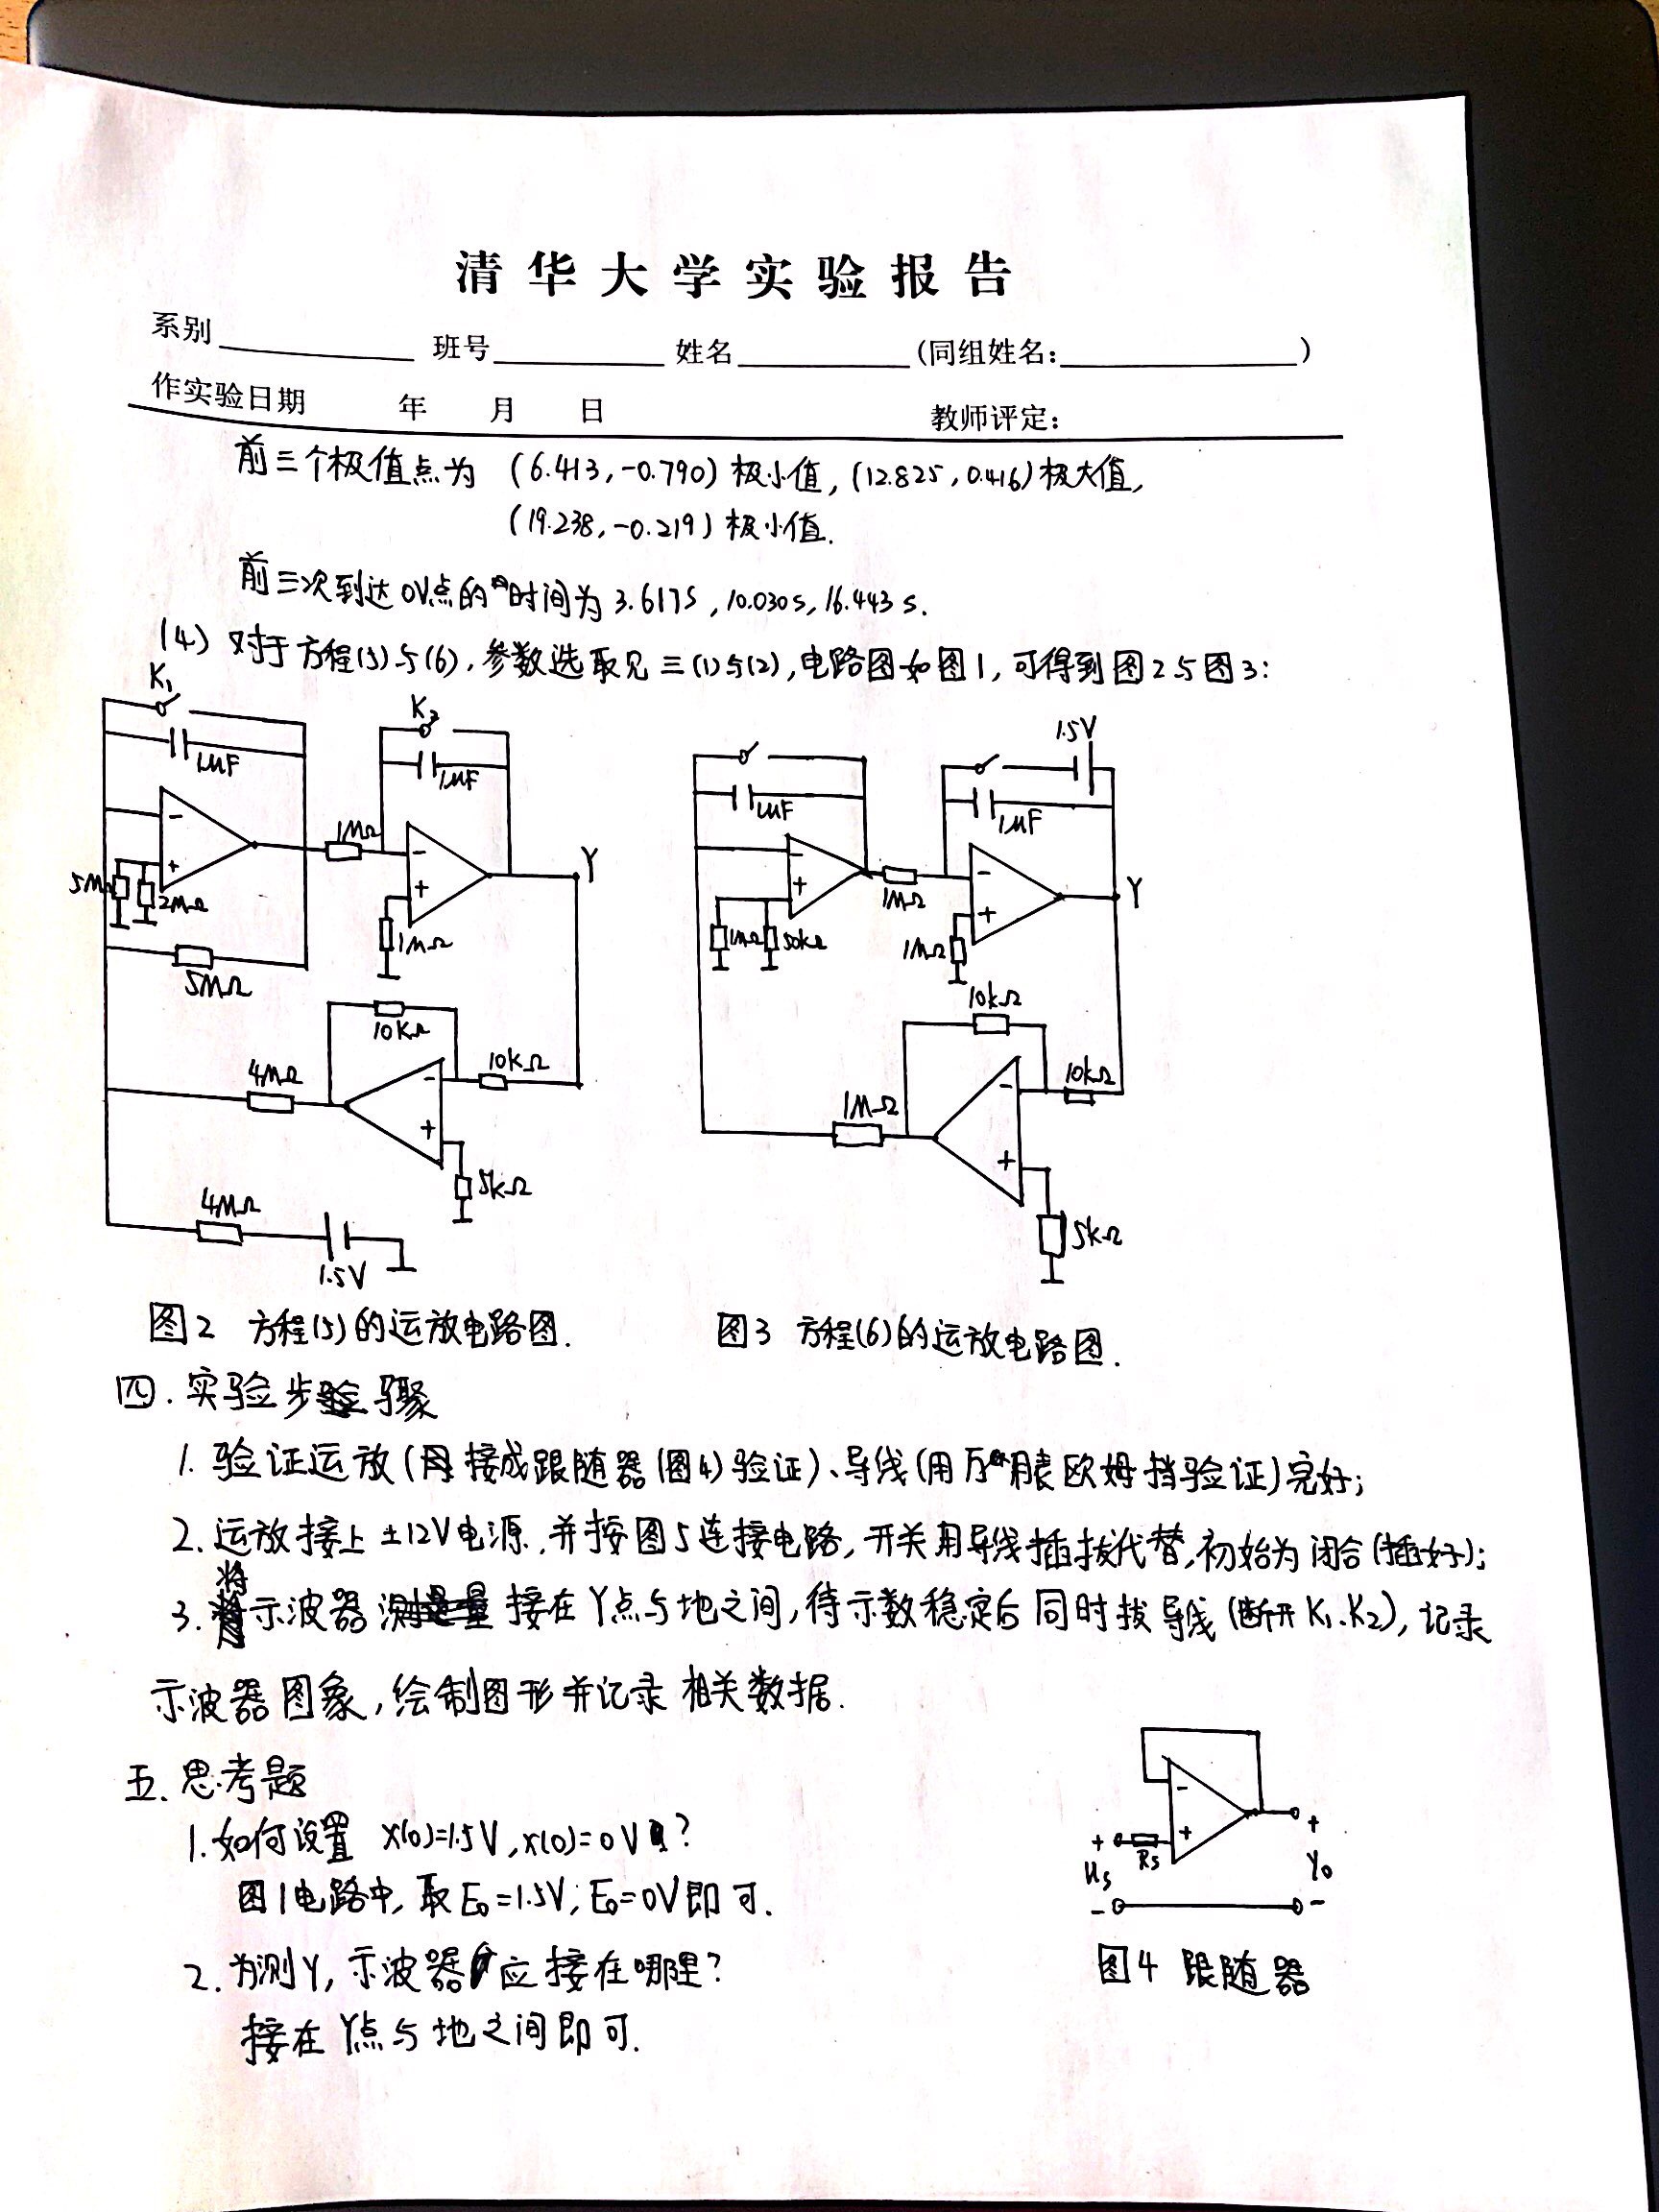 清华大学实验报告
系别 班号 姓名 (同组姓名: )
作实验日期 年 月 日 教师评定:
前三个极值点为 (6.413,-0.790) 极小值, (12.825,0.416) 极大值,
(19.238,-0.219) 极小值.
前三次到达0V点的时间为 3.617s, 10.030s, 16.443s.
(4) 对于方程(5)与(6), 参数选取见三(1)与(2), 电路图如图1, 可得到图2与图3:
K₁
1μF
K₂
1μF
1MΩ
-
+
5MΩ
2MΩ
-
+
1MΩ
Y
5MΩ
10KΩ
10KΩ
4MΩ
-
+
5KΩ
4MΩ
1.5V
1.5V
1μF
1μF
-
+
1MΩ
1MΩ
50kΩ
-
+
1MΩ
Y
10kΩ
10kΩ
1MΩ
-
+
5kΩ
图2 方程(5)的运放电路图.
图3 方程(6)的运放电路图.
四. 实验步骤
1. 验证运放(接成跟随器(图4)验证)、导线(用万用表欧姆挡验证)完好;
2. 运放接上±12V电源, 并按图5连接电路, 开关用导线插拔代替, 初始为闭合(插好);
3. 将示波器接在Y点与地之间, 待示数稳定后同时拔导线(断开K₁、K₂), 记录
示波器图象, 绘制图形并记录相关数据.
五. 思考题
1. 如何设置 x(0)=1.5V, x(0)=0V?
图1电路中, 取E₀=1.5V; E₀=0V即可.
2. 为测Y, 示波器应接在哪里?
接在Y点与地之间即可.
-
+
+
Rs
Us
-
+
Y₀
-
图4 跟随器